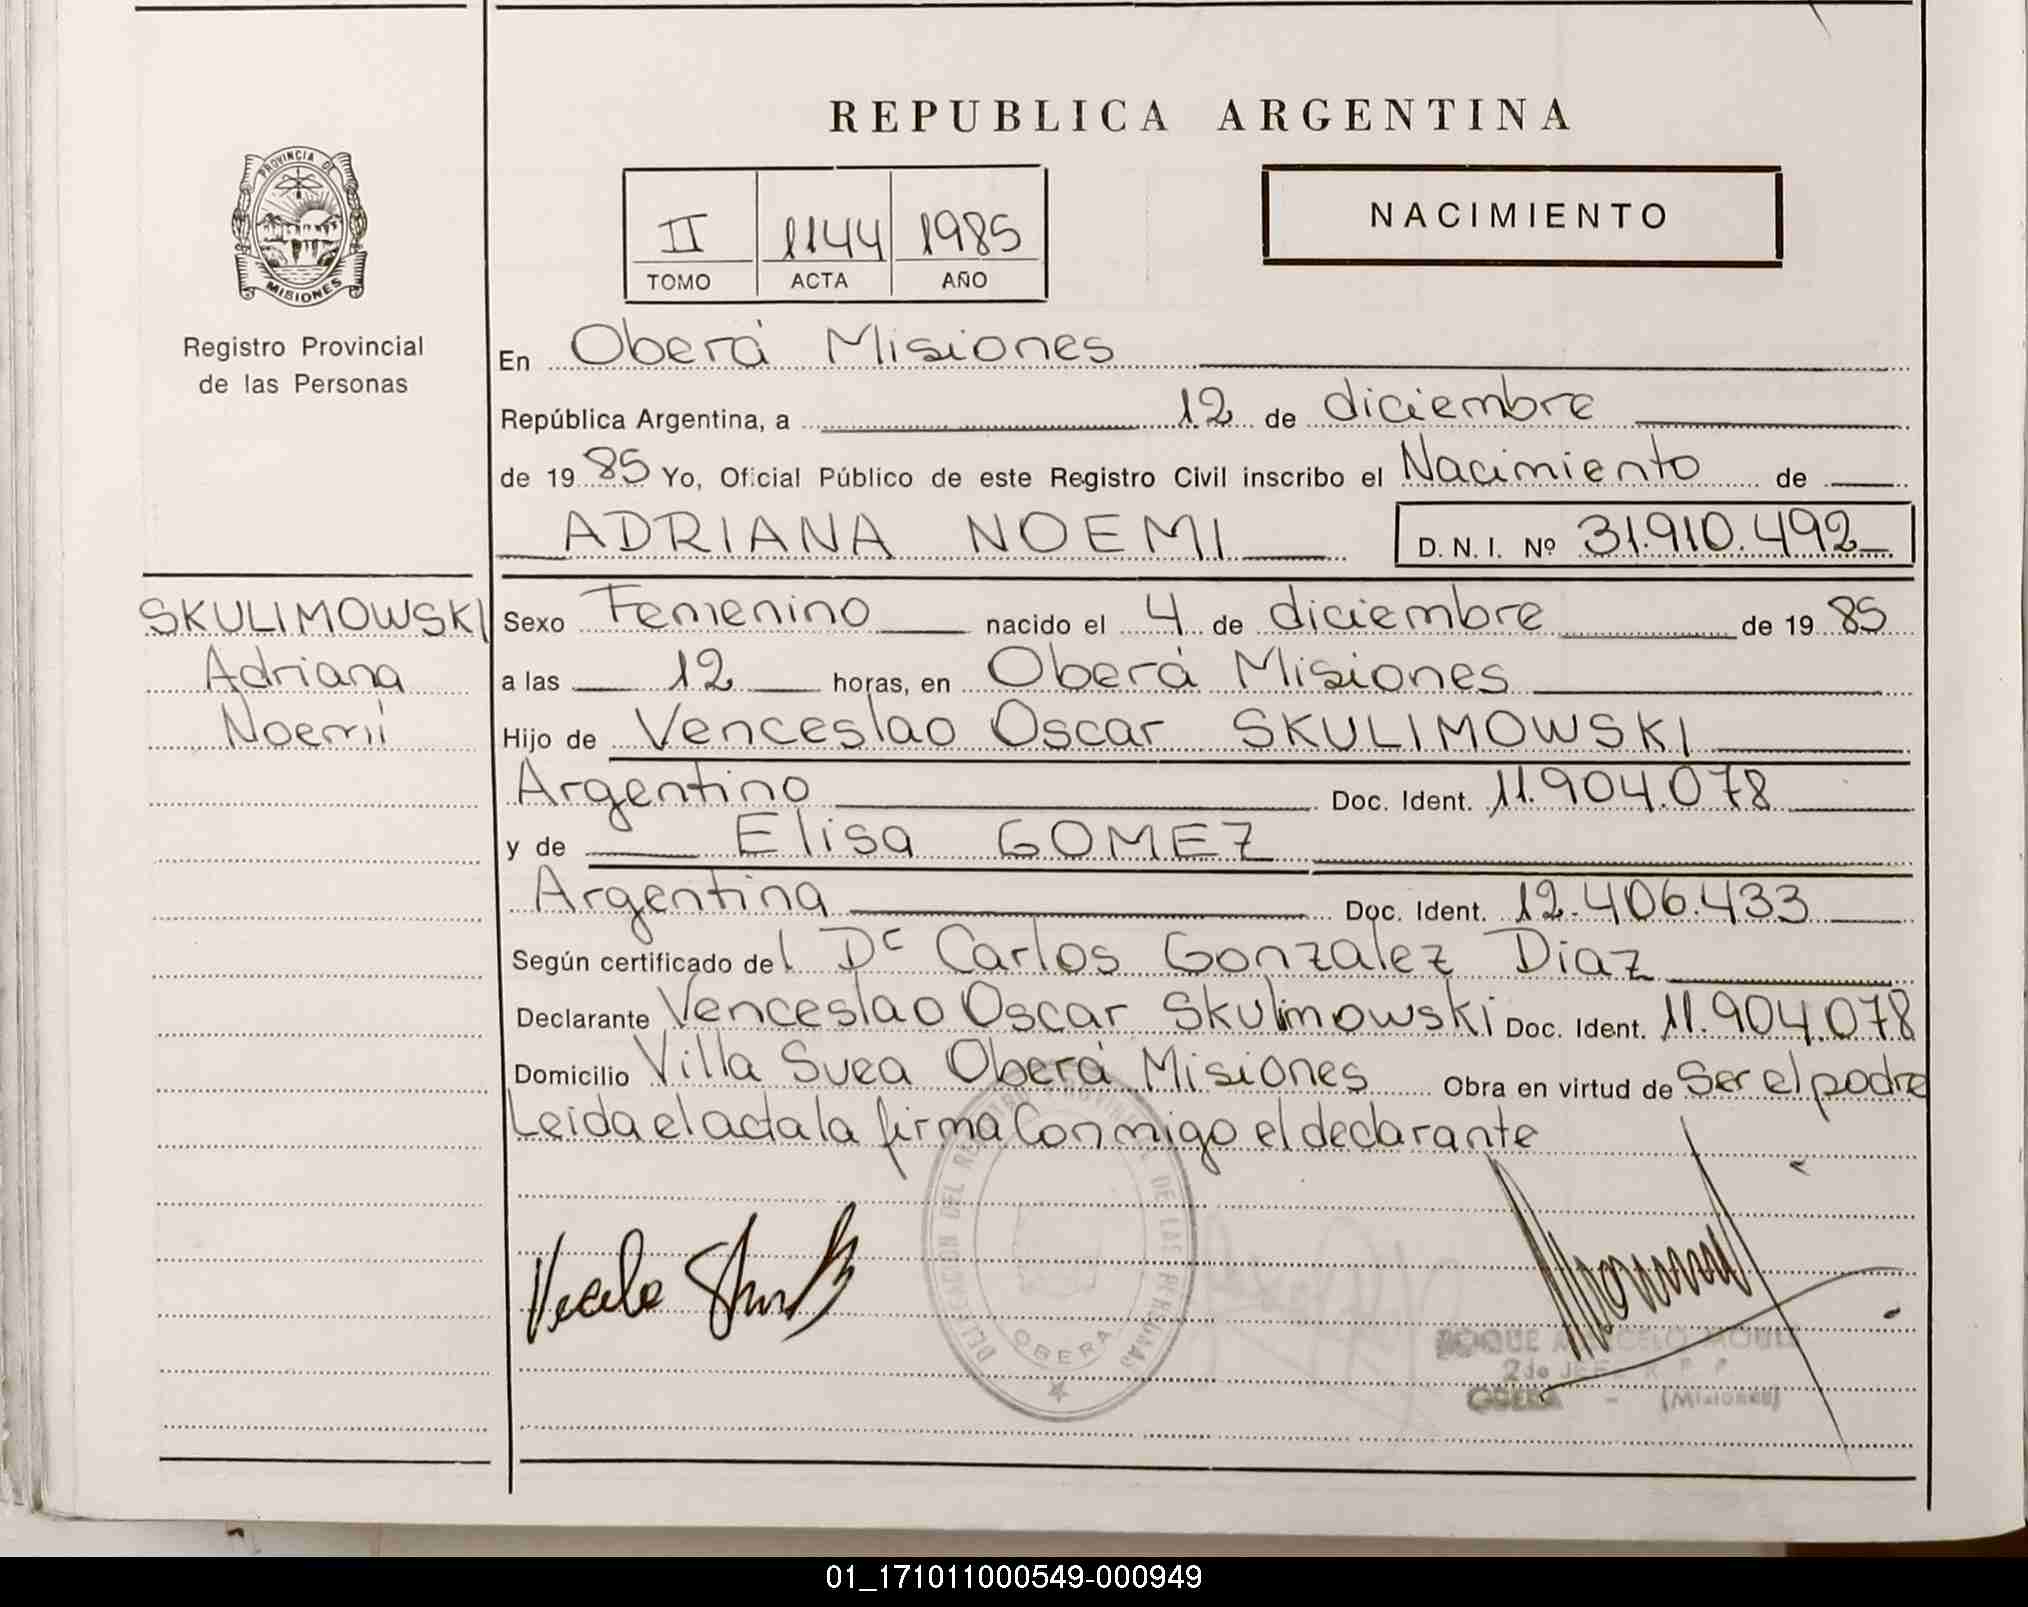 REPUBLICA ARGENTINA
PROVINCIA DE
MISIONES
Registro Provincial
de las Personas
II 1144 1985
TOMO ACTA AÑO
NACIMIENTO
En Oberá Misiones
República Argentina, a 12 de diciembre
de 19 85 Yo, Oficial Público de este Registro Civil inscribo el Nacimiento de
ADRIANA NOEMI D.N.I. Nº 31.910.492
SKULIMOWSKI
Adriana
Noemí
Sexo Femenino nacido el 4 de diciembre de 19 85
a las 12 horas, en Oberá Misiones
Hijo de Venceslao Oscar SKULIMOWSKI
Argentino Doc. Ident. 11.904.078
y de Elisa GOMEZ
Argentina Doc. Ident. 12.406.433
Según certificado del Dr Carlos Gonzalez Diaz
Declarante Venceslao Oscar Skulimowski Doc. Ident. 11.904.078
Domicilio Villa Svea Oberá Misiones Obra en virtud de Ser el padre
Leida el acta la firma Conmigo el declarante
DELEGACION DEL REGISTRO PROVINCIAL DE LAS PERSONAS
OBERA
ROQUE
2do JEFE R P P
OBERA - (Misiones)
01_171011000549-000949